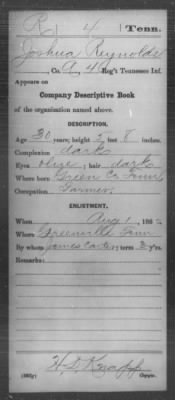 R 4 Tenn.
Joshua Reynolds
, Co. A, 4 Reg't Tennessee Inf.
Appears on
Company Descriptive Book
of the organization named above.
DESCRIPTION.
Age 30 years; height 5 feet 8 inches.
Complexion dark
Eyes olive; hair dark
Where born Green Co Tenn
Occupation Farmer
ENLISTMENT.
When Aug 1, 186
Where Greenville Tenn
By whom James Carter; term 3 y'rs.
Remarks:
H. D. Knapp
Copyist.